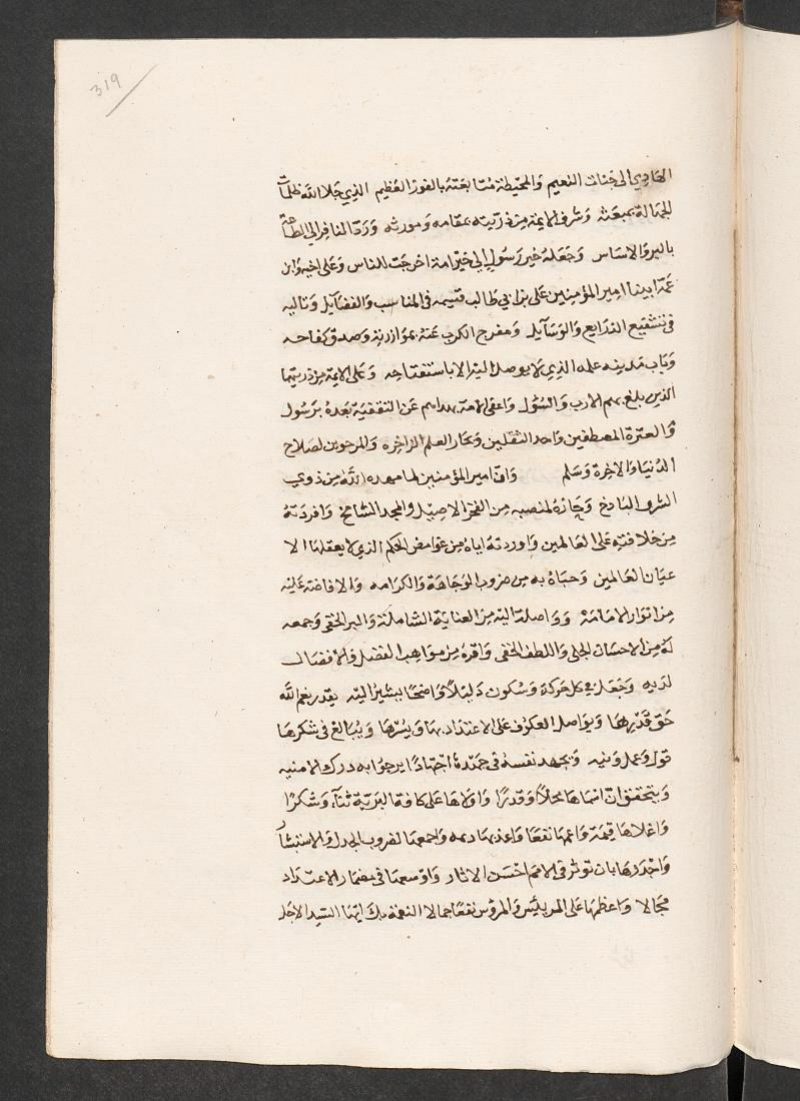 319
الهادي الى جنات النعيم والمحيطة متابعته بالفوز العظيم الذي جلا الله ظلمات
الجهالة بمبعثه وشرف الايمة من ذريته بمقامه وموروثه ورد النافر الى الطاعة
بالبر والايناس وجعله خير رسول الى خير امة اخرجت للناس وعلى اخيه وابن
عمه ابينا امير المؤمنين على بن ابي طالب قسيمه في المناسب والفضايل وتاليه
في تشفيع الذرايع والوسايل ومفرج الكرب عنه بموازرته وصدق كفاحه
وباب مدينه علمه الذي لا يوصل اليه الا باستفتاحه وعلى الايمة من ذريتهما
الذين بلغ بهم الارب والسؤل واغنى الامة بهداهم عن التقفية بعده برسول
والعترة المصطفين واحد الثقلين وبحار العلم الزاخره والمرجوين لصلاح
الدنيا والاخرة وسلم وان امير المؤمنين لما مهده الله من ذوي
الشرف الباذخ وحازه لمنصبه من الفخر الاصيل والمجد الشامخ وافردته
من خلافته على العالمين واوردته اياه من غوامض الحكم الذي لا يعقلها الا
عيان العالمين وحباه به من ضروب الوجاهة والكرامه والافاضة عليه
من انوار الامامة وواصلة اليه من العناية الشاملة والبر الخفى وجمعه
له من الاحسان الجلى واللطف الخفى واقره من مواهب الفضل والافضال
لديه وجعل في كل حركة وسكون دليلا واضحا يشير اليه يقدر نعم الله
حق قدرها ويواصل العكوف على الاعتداد بها وينشرها ويبالغ في شكرها
قول وعمل ونيه ويجهد نفسه في حمده اجتهادا يرجوا به درك الامنيه
ويتحقق ان اسماها محلا وقدرا واولاها على كافة البرية ثناء وشكرا
واغلاها قيمة واعمها نفعا ديمه واجمعها لضروب الجدل والاستبشار
واجدرها بان توثر في الامم احسن الاثار واوسعها في مضمار الاعتداد
مجالا واعظمها على والمرؤس نفعا جمالا النعمة بك ايها السيد الاجل